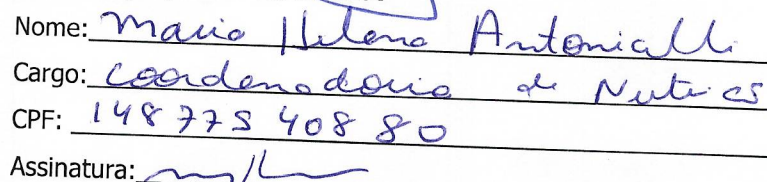 Nome: Maria Helena Antonialli
Cargo: Coordenadoria de
CPF: 148 775 408 80
Assinatura: